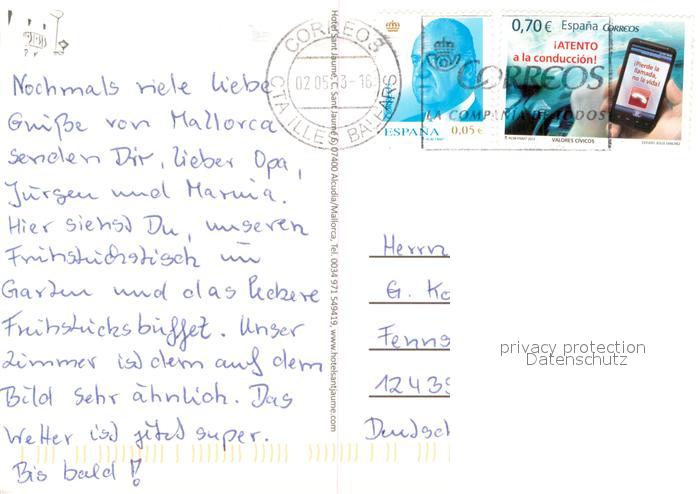 Nochmals viele liebe
Grüße von Mallorca
senden Dir, lieber Opa,
Jürgen und Marnia.
Hier siehst Du, unseren
Frühstückstisch im
Garten und das leckere
Frühstücksbüffet. Unser
Zimmer ist dem auf dem
Bild sehr ähnlich. Das
Wetter ist jetzt super.
Bis bald!
Hotel Sant Jaume, Sant Jaume 6, 07400 Alcudia/Mallorca, Tel. 0034 971 549419, www.hotelsantjaume.com
CORREOS
02 05 13-16
CTA ILLES BALEARS
ESPAÑA 0,05 €
CORREOS
LA COMPAÑIA DE TODOS
0,70 € España CORREOS
¡ATENTO
a la conducción!
¡Pierde la
llamada,
no la vida!
VALORES CÍVICOS
Herrn
G. Ko
Fenns
12439
Deutsch
privacy protection
Datenschutz